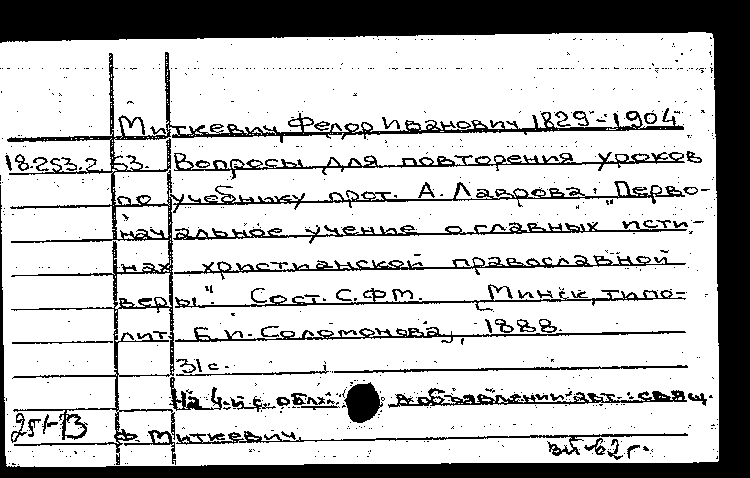 Миткевич, Федор Иванович, 1829-1904
18.253.2.53. Вопросы для повторения уроков
по учебнику прот. А. Лаврова: "Перво-
начальное учение о главных исти-
нах христианской православной
веры". Сост. С.ФМ. [Минск, типо-
лит. Б.И. Соломонова], 1888.
31с.
На 4-й с. облож. в объявлении авт.: свящ.
251-73
Ф Миткевич.
62г.